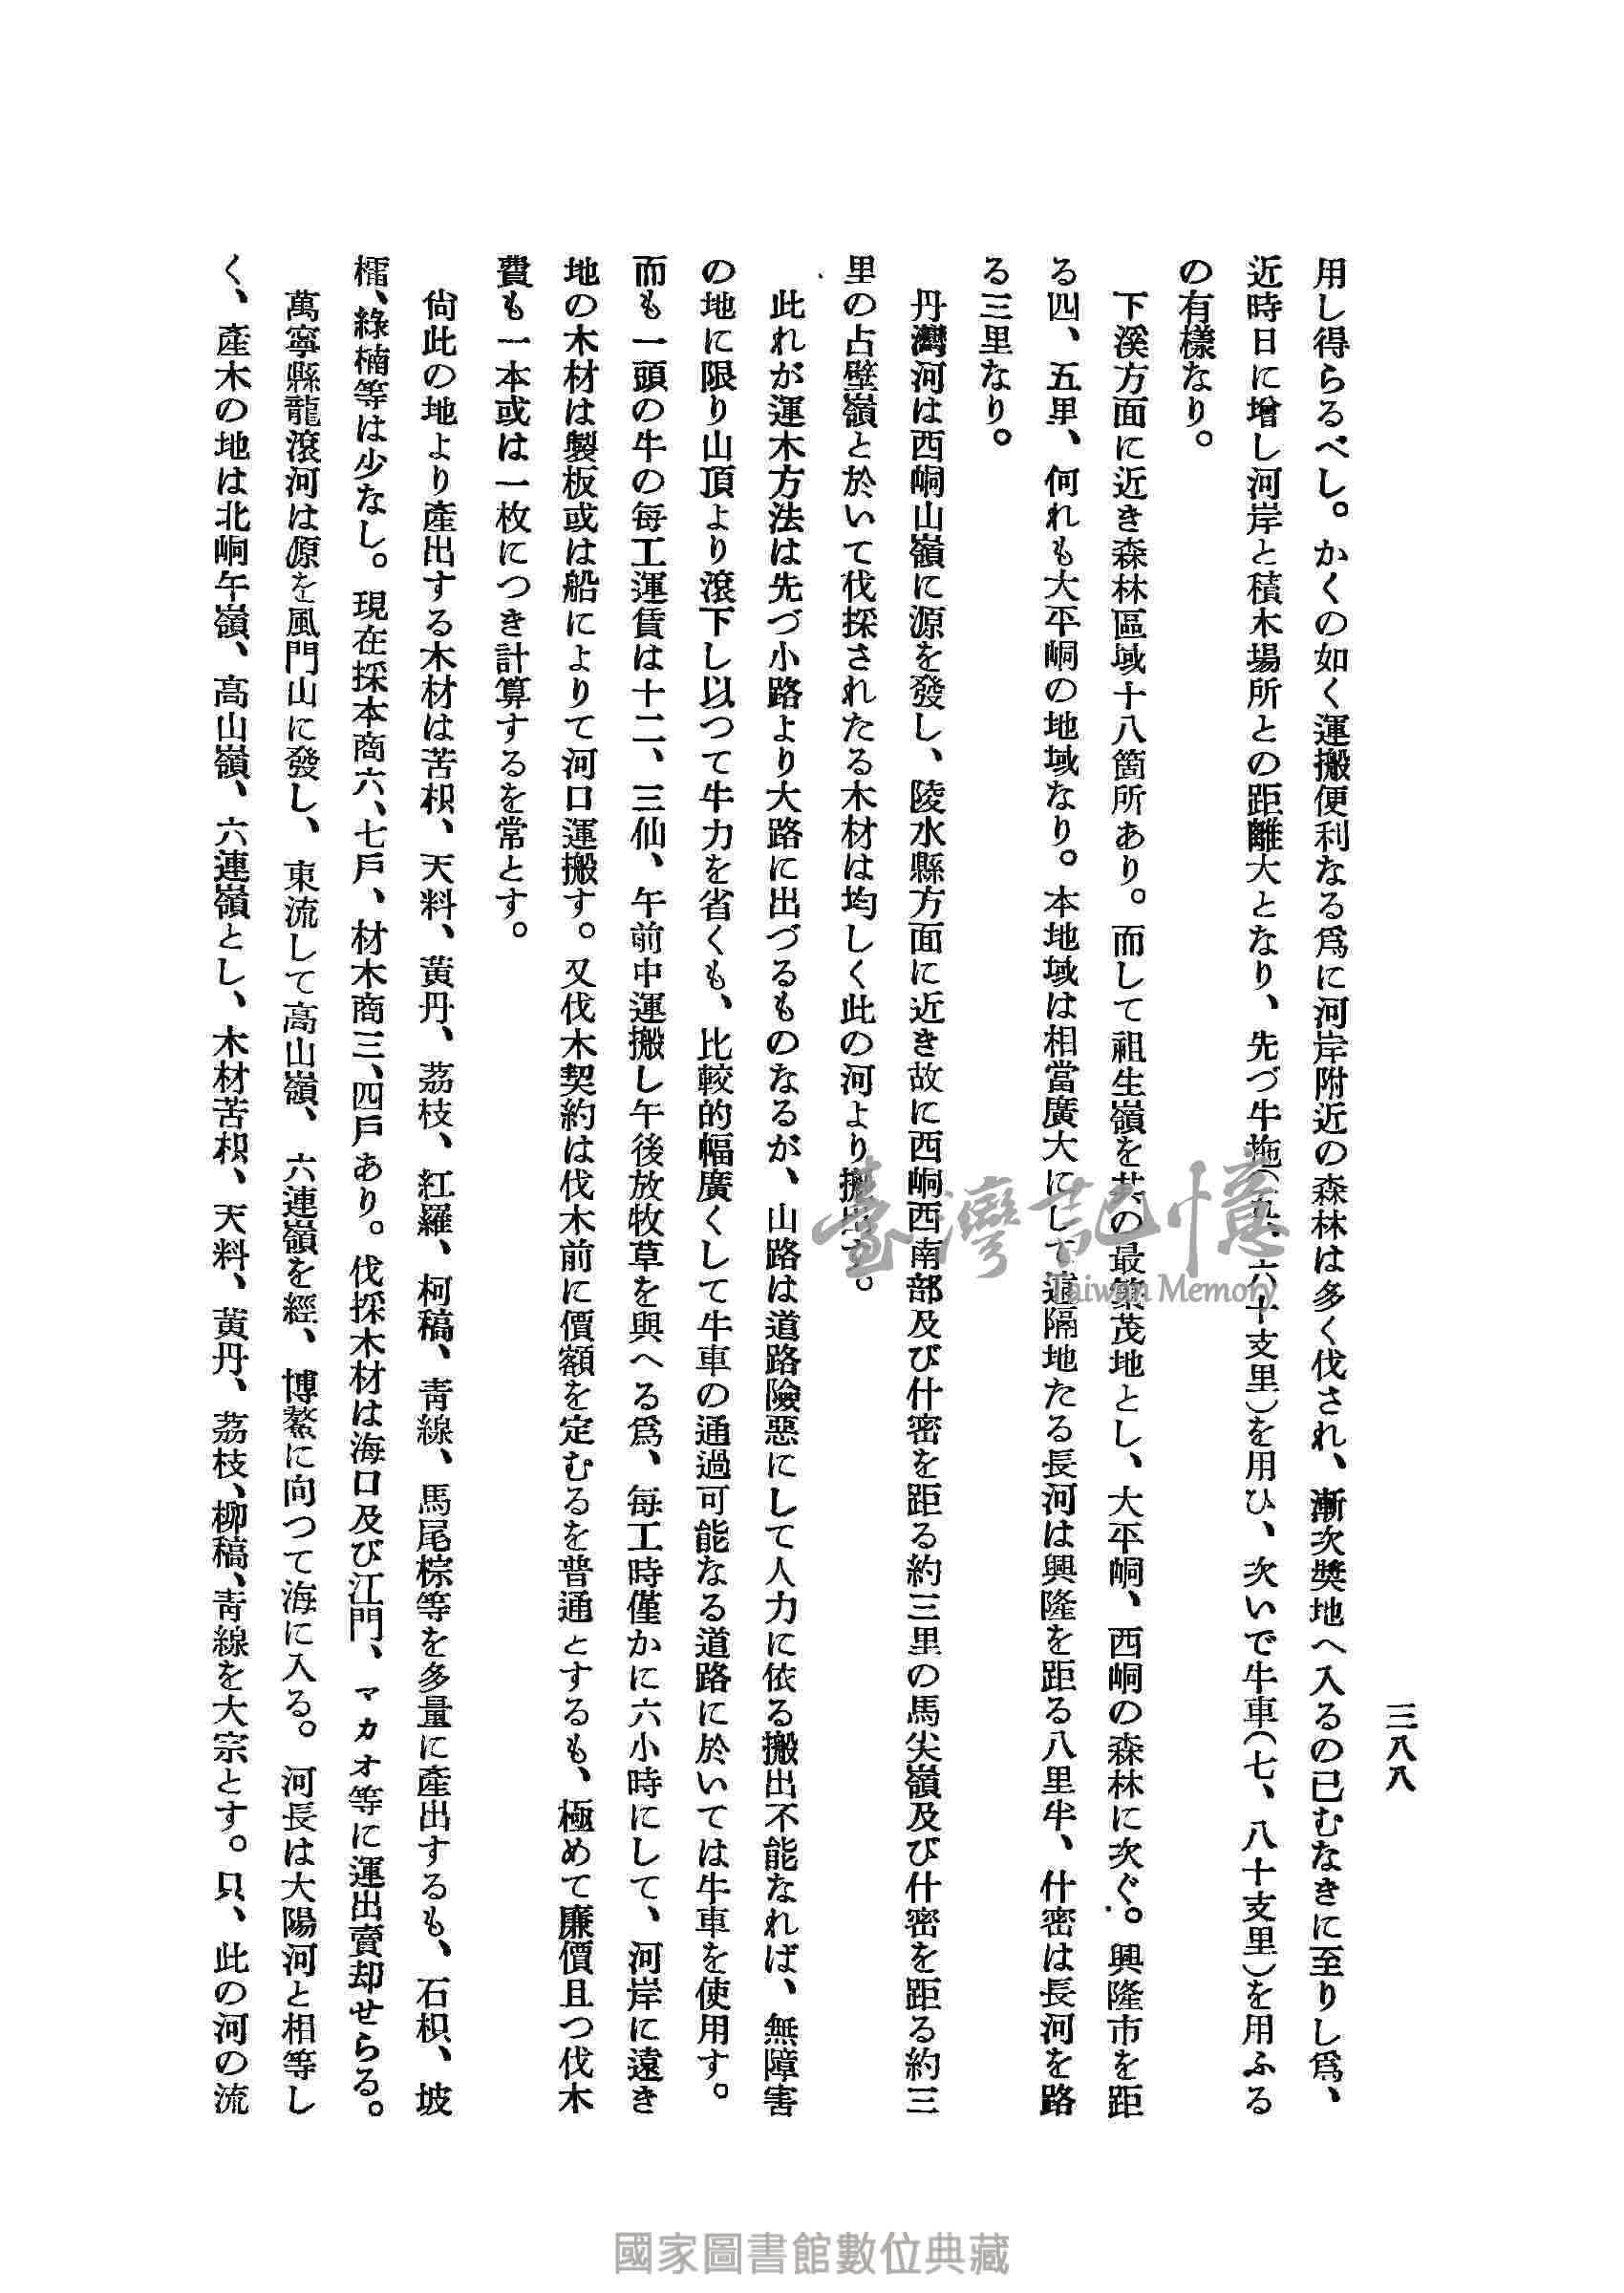 三八八
用し得らるべし。かくの如く運搬便利なる爲に河岸附近の森林は多く伐され、漸次奬地へ入るの已むなきに至りし爲、
近時日に增し河岸と積木場所との距離大となり、先づ牛拖(五、六十支里)を用ひ、次いで牛車(七、八十支里)を用ふる
の有樣なり。
下溪方面に近き森林區域十八箇所あり。而して祖生嶺を其の最繁茂地とし、大平峒、西峒の森林に次ぐ。興隆市を距
る四、五里、何れも大平峒の地域なり。本地域は相當廣大にして遠隔地たる長河は興隆を距る八里半、什密は長河を路
る三里なり。
丹灣河は西峒山嶺に源を發し、陵水縣方面に近き故に西峒西南部及び什密を距る約三里の馬尖嶺及び什密を距る約三
里の占壁嶺と於いて伐採されたる木材は均しく此の河より搬出す。
此れが運木方法は先づ小路より大路に出づるものなるが、山路は道路險惡にして人力に依る搬出不能なれば、無障害
の地に限り山頂より滾下し以つて牛力を省くも、比較的幅廣くして牛車の通過可能なる道路に於いては牛車を使用す。
而も一頭の牛の每工運賃は十二、三仙、午前中運搬し午後放牧草を與へる爲、每工時僅かに六小時にして、河岸に遠き
地の木材は製板或は船によりて河口運搬す。又伐木契約は伐木前に價額を定むるを普通とするも、極めて廉價且つ伐木
費も一本或は一枚につき計算するを常とす。
尙此の地より產出する木材は苦枳、天料、黃丹、茘枝、紅羅、柯稿、靑線、馬尾棕等を多量に產出するも、石枳、坡
檽、綠楠等は少なし。現在採本商六、七戶、材木商三、四戶あり。伐採木材は海口及び江門、マカオ等に運出賣却せらる。
萬寧縣龍滾河は源を風門山に發し、東流して高山嶺、六連嶺を經、博鰲に向つて海に入る。河長は大陽河と相等し
く、產木の地は北峒午嶺、高山嶺、六連嶺とし、木材苦枳、天料、黃丹、茘枝、柳稿、靑線を大宗とす。只、此の河の流
臺灣記憶
Taiwan Memory
國家圖書館數位典藏